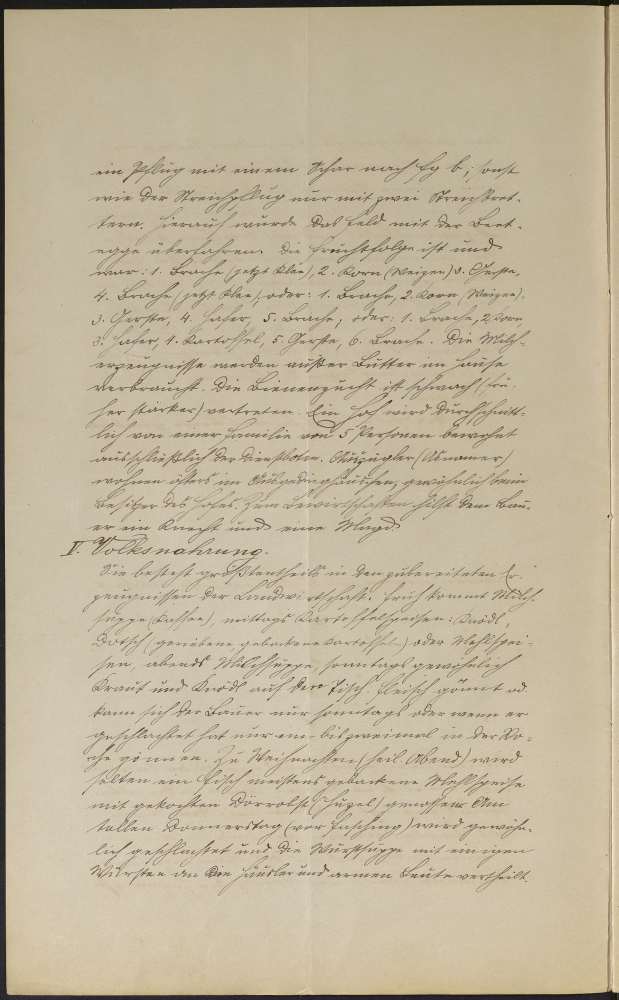 ein Pflug mit einem Schar nach Fig b; sonst
wie der Streichpflug nur mit zwei Streichbret-
tern. Hierauf wurde das Feld mit der Beet-
egge überfahren. Die Fruchtfolge ist und
war: 1. Brache (jetzt Klee), 2. Korn (Weizen) 3. Gerste,
4. Brache (jetzt Klee), oder: 1. Brache, 2. Korn (Weizen),
3. Gerste, 4. Hafer, 5. Brache, oder: 1. Brache, 2. Korn
3. Hafer, 4. Kartoffel, 5. Gerste, 6. Brache. Die Milch-
erzeugnisse werden außer Butter im Hause
verbraucht. Die Bienenzucht ist schwach (frü-
her stärker) vertreten. Ein Hof wird durchschnitt-
lich von einer Familie von 5 Personen bewohnt
ausschließlich der Dienstboten. Auszügler
wohnen öfters im Ausgedinghäuschen, gewöhnlich beim
Besitzer des Hofes. Zum Bewirtschaften hilft dem Bau-
er ein Knecht und eine Magd.
V. Volksnahrung.
Sie besteht größtentheils in den zubereiteten Er-
zeugnissen der Landwirtschaft. Früh kommt Milch-
suppe (Kaffee), mittags Kartoffelspeisen: Knödl,
Dotsch (geriebene, gebackene Kartoffel) oder Mehlspei-
sen, abends Milchsuppe, sonntags gewöhnlich
Kraut und Knödl auf den Tisch. Fleisch gönnt od.
kann sich der Bauer nur sonntags oder wenn er
geschlachtet hat nur ein- bis zweimal in der Wo-
che gönnen. Zu Weihnachten (heil. Abend) wird
selten ein Fisch meistens gebackene Mehlspeise
mit gekochten Dörrobst genossen. Am
tollen Donnerstag (vor Fasching) wird gewöhn-
lich geschlachtet und die Wurstsuppe mit einigen
Würsten an die Häusler und armen Leute vertheilt.